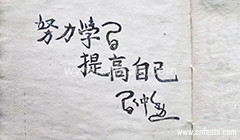 努力学习
提高自己
www.cnfests.com